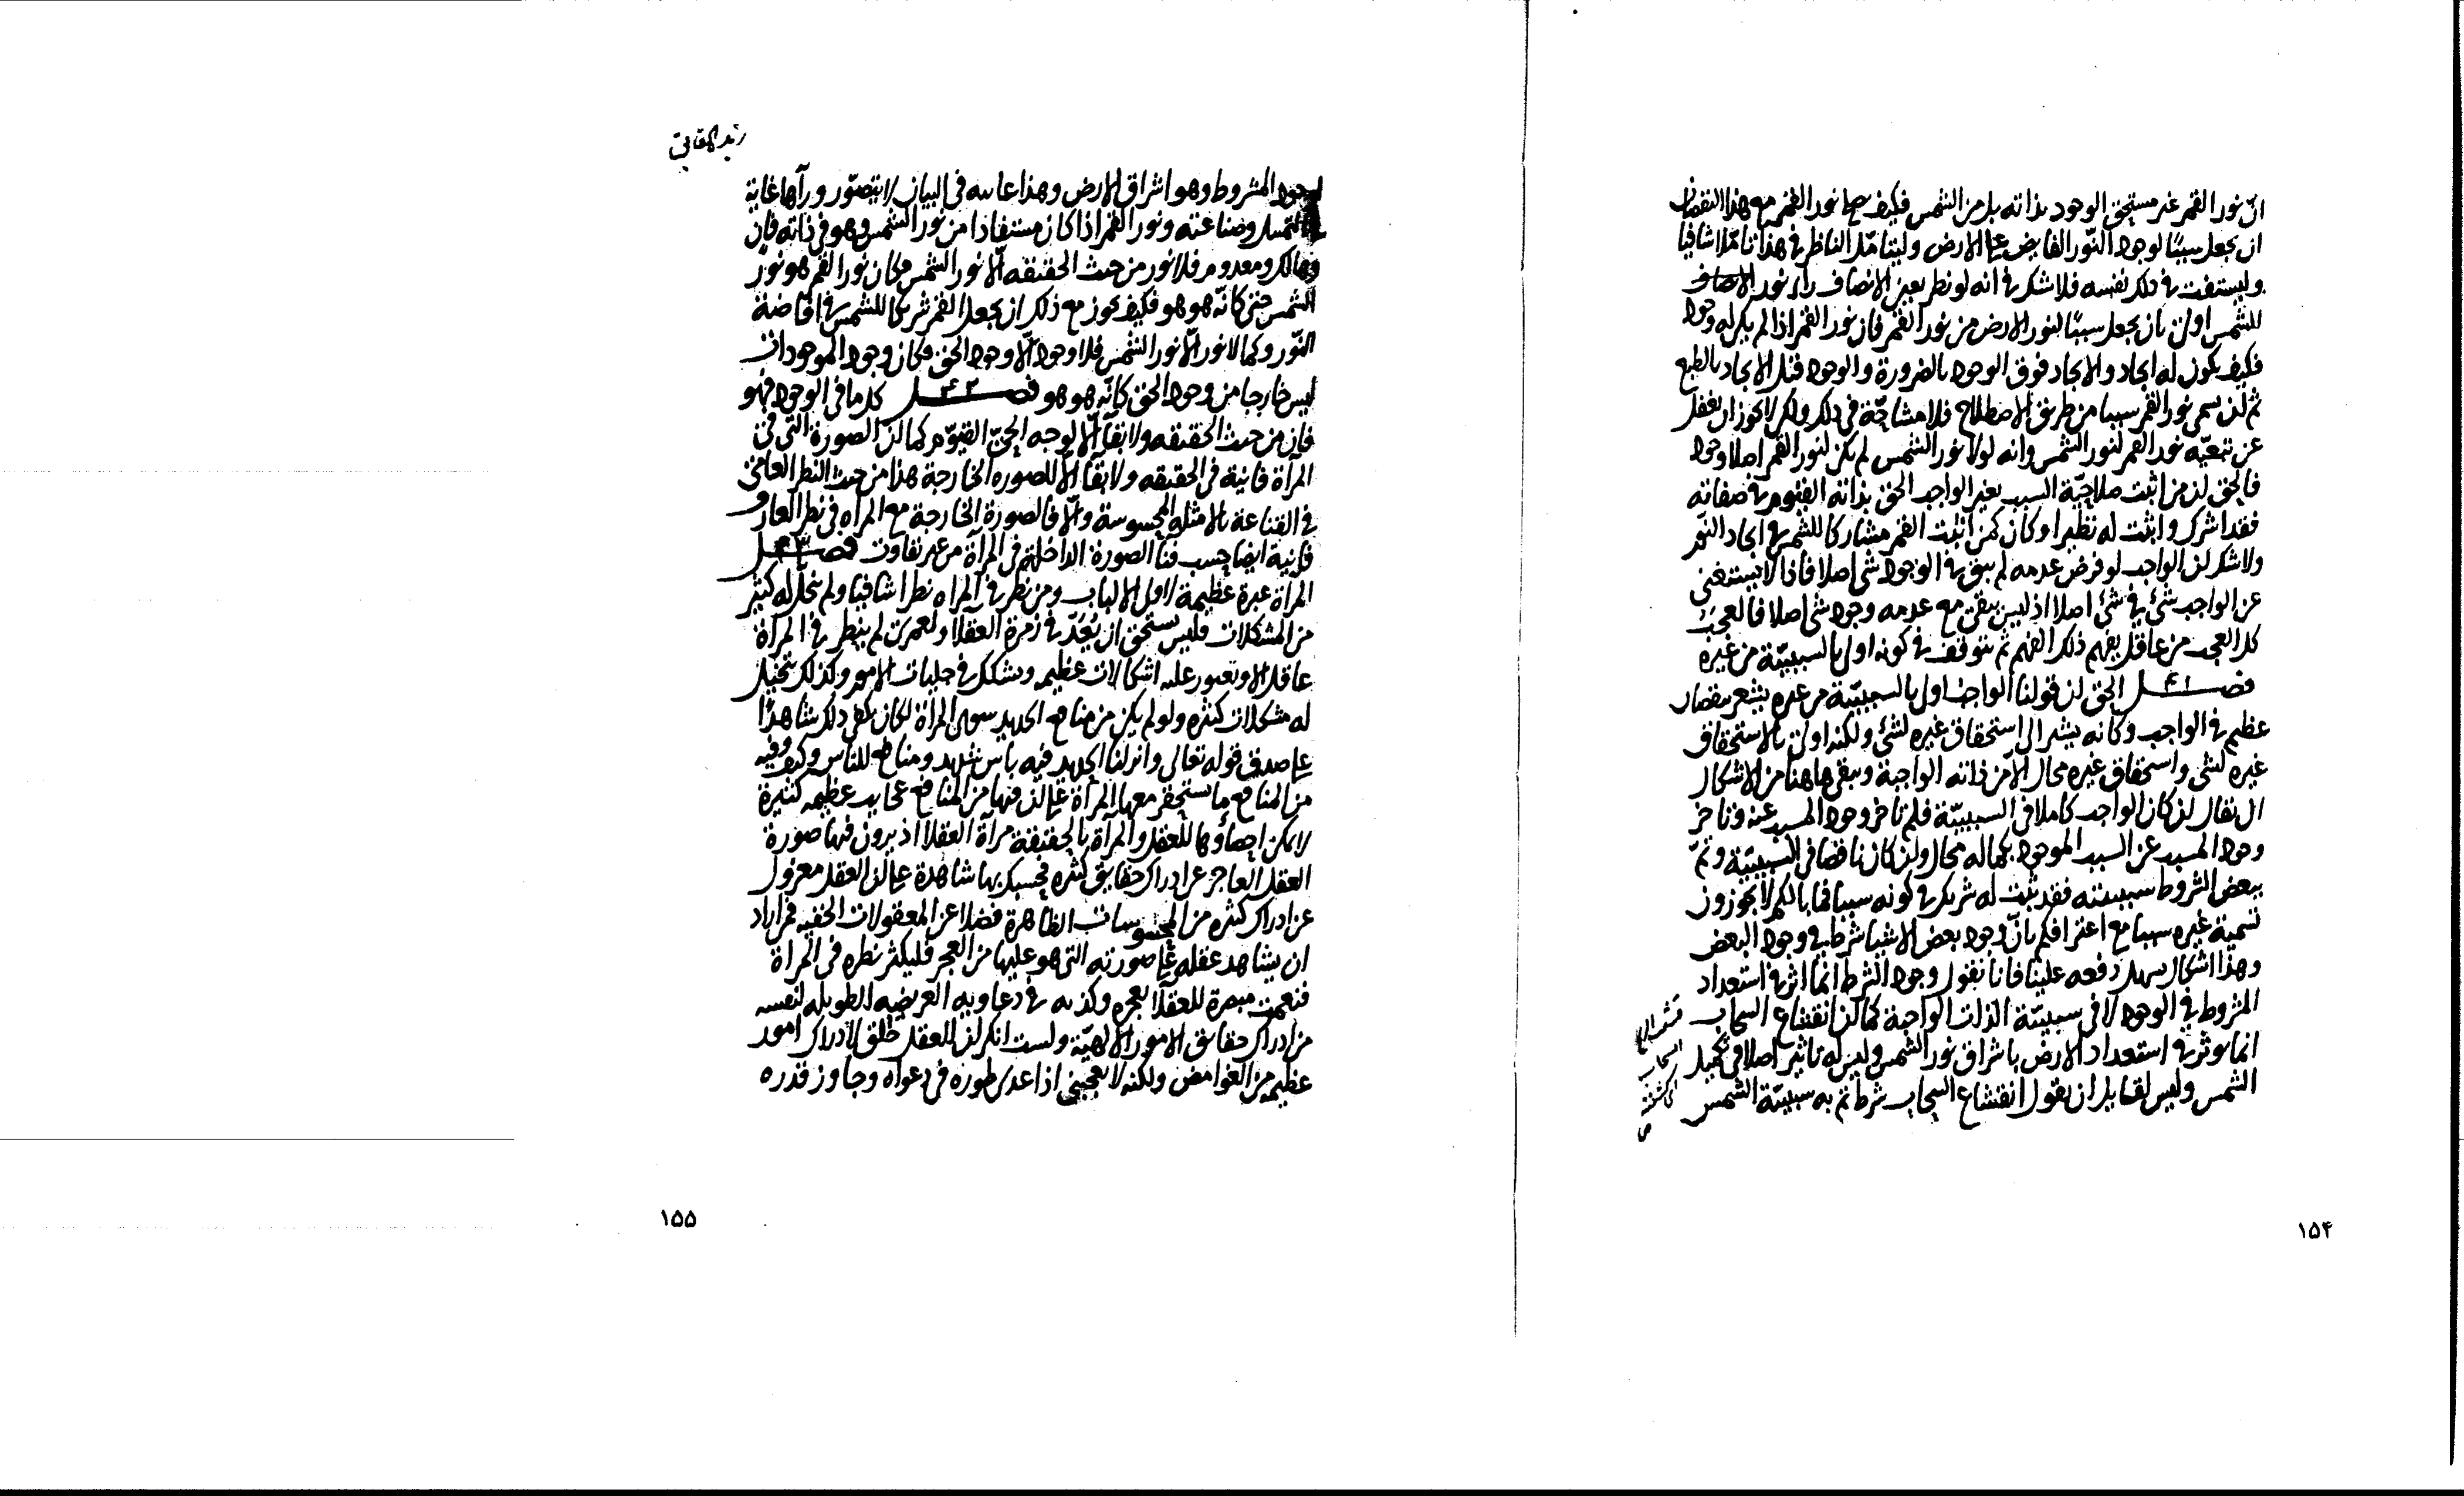 انّ نور القمر غير مستحق الوجود بذاته بل من الشمس فكيف صلح نور القمر مع هذا النقصان
ان يجعل سببًا لوجود النّور الفايض على الارض وليتأمّل الناظر في هذا تأمّلا شافيا
وليستفت في ذلك نفسه فلا شك في انه لو نظر بعين الانصاف راى نور
للشمس اولى بان يجعل سببًا لنور الارض من نور القمر فان نور القمر اذا لم يكن له وجود
فكيف يكون له ايجاد والايجاد فوق الوجود بالضرورة والوجود قبل الايجاد بالطبع
ثم لن سمى نور القمر سببا من طريق الاصطلاح فلا مشاحّة في ذلك ولكن لا يجوز ان يغفل
عن تبعيّة نور القمر لنور الشمس وانه لولا نور الشمس لم يكن لنور القمر اصلا وجود
فالحق لن من اثبت صلاحيّة السبب بغير الواجب الحق بذاته القيوم في صفاته
فقد اشرك واثبت له نظيرا وكان كمن اثبت القمر مشاركا للشمس في ايجاد النّور
ولا شك لن الواجب لو فرض عدمه لم يبق في الوجود شئ اصلا فاذا لا يستغنى
عن الواجب شئ في شئ اصلا اذ ليس يبقى مع عدمه وجود شئ اصلا فالعجب
كل العجب من عاقل يفهم ذلك الفهم ثم يتوقف في كونه اولى بالسببيّة من غيره
فصل ۴۱ الحق لن قولنا الواجب اولى بالسببيّة من غيره يشعر بنقصان
عظيم في الواجب وكانه يشير الى استحقاق غيره لشئ ولكنه اولى بالاستحقاق
غيره لشئ واستحقاق غيره محال الّا من ذاته الواجبة ويبقى هاهنا من الاشكال
ان يقال لن كان الواجب كاملا في السببيّة فلم تاخر وجود المسبب عنه وتاخر
وجود المسبب عن السبب الموجود بكماله محال ولن كان ناقصا في السببيّة وتمّ
ببعض الشروط سببيته فقد ثبت له شريك في كونه سببا فما بالكم لا تجوزون
تسمية غيره سببا مع اعترافكم بانّ وجود بعض الاشيا شرط في وجود البعض
وهذا اشكال يسهل دفعه علينا فانا نقول وجود الشرط انما اثر في استعداد
المشروط في الوجود لا في سببيّة الذات الواجبة كما لن انقشاع السحاب
انما يوثر في استعداد الارض باشراق نور الشمس وليس له تاثير اصلا في تكميل
الشمس وليس لقايل ان يقول انقشاع السحاب شرط تم به سببيّة الشمس
۱۵۴
لوجود المشروط وهو اشراق الارض وهذا غايته في البيان لا يتصوّر ورآها غاية
وصناعته ونور القمر اذا كان مستفادا من نور الشمس وهو في ذاته فان
وهالك ومعدوم فلا نور من حيث الحقيقه الّا نور الشمس وكان نور القمر هو نور
الشمس حتى كانّه هو هو فكيف يجوز مع ذلك ان يجعل القمر شريكا للشمس في افاضة
النّور وكما لا نور الّا نور الشمس فلا وجود الّا وجود الحق وكان وجود الموجودات
ليس خارجا من وجود الحق كانّه هو هو فصل ۴۲ كل ما في الوجود فهو
فان من حيث الحقيقه ولا بقآ الّا لوجه الحىّ القيّوم كما لنّ الصورة التى في
المرآة فانية في الحقيقه ولا بقآ الّا للصوره الخارجة هذا من حيث النظر العامى
في القناعة بالامثله المحسوسة والّا فالصورة الخارجة مع المراه في نظر العارف
فانية ايضا حسب فنآ الصورة الداخلة في المرآة من غير تفاوت فصل ۴۳
المراة عبرة عظيمة لاولى الالباب ومن نظر في المراه نظرا شافيا ولم ينحلّ له كثير
من المشكلات فليس يستحق ان يُعَدّ في زمرة العقلا ولعمرى لم ينظر في المرآة
عاقل الا وتعتور عليه اشكالات عظيمه وتشكك في جليات الامور وكذلك تتخيل
له مشكلات كثيره ولو لم يكن من منافع الحديد سوى المراة لكان يكفى ذلك شاهدًا
على صدق قوله تعالى وانزلنا الحديد فيه باس شديد ومنافع للناس وكيف وفيه
من المنافع ما يستحقر معها المرآة على لن فيها من المنافع عجايب عظيمه كثيرة
لا يمكن احصاؤها للعقل والمرآة بالحقيقة مرآة العقلا اذ يرون فيها صورة
العقل العاجز عن ادراك حقايق كثيره فحسبك بها شاهدة على لن العقل معزول
عن ادراك كثيره من المحسوسات الظاهرة فضلا عن المعقولات الخفيه فمن اراد
ان يشاهد عقله على صورته التى هو عليها من العجز فليكثر نظره في المرآة
فنعمت مبصرة للعقلآ بعجزه وكذبه في دعاويه العريضه الطويله لنفسه
من ادراك حقايق الامور الالهيّة ولست انكر لن العقل خلق لادراك امور
عظيم من الغوامض ولكنه لا يعجبنى اذا عدى طوره في دعواه وجاوز قدره
۱۵۵